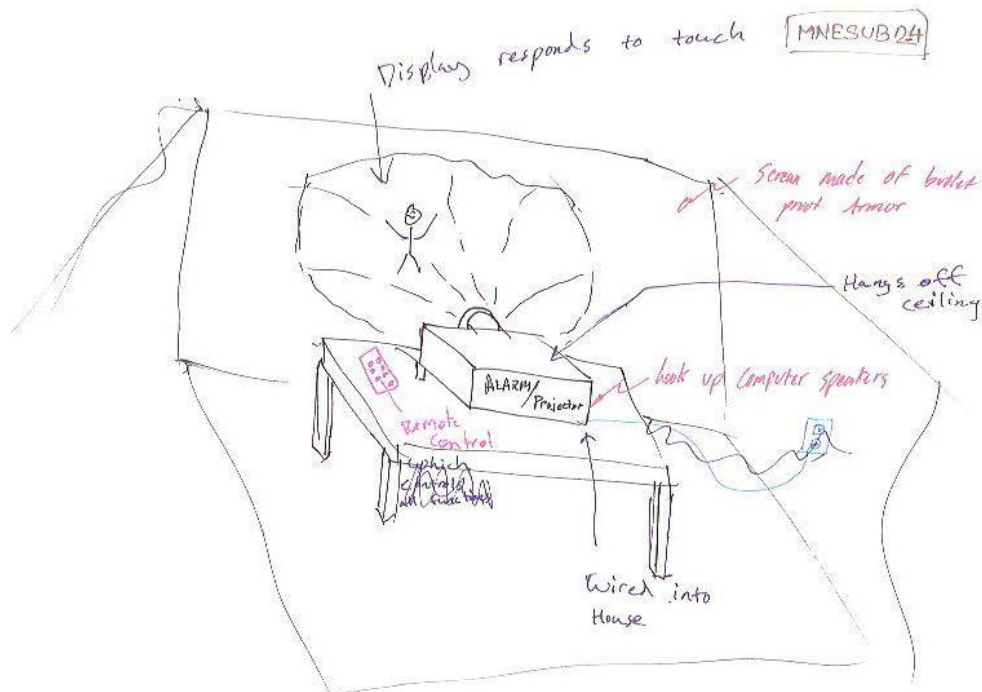 Display responds to touch
MNESUBD24
Screan made of bullet
proof Armor
Hangs off
ceiling
hook up Computer speakers
ALARM/
Projector
Remote
Control
which
controls
all functions
Wired into
House